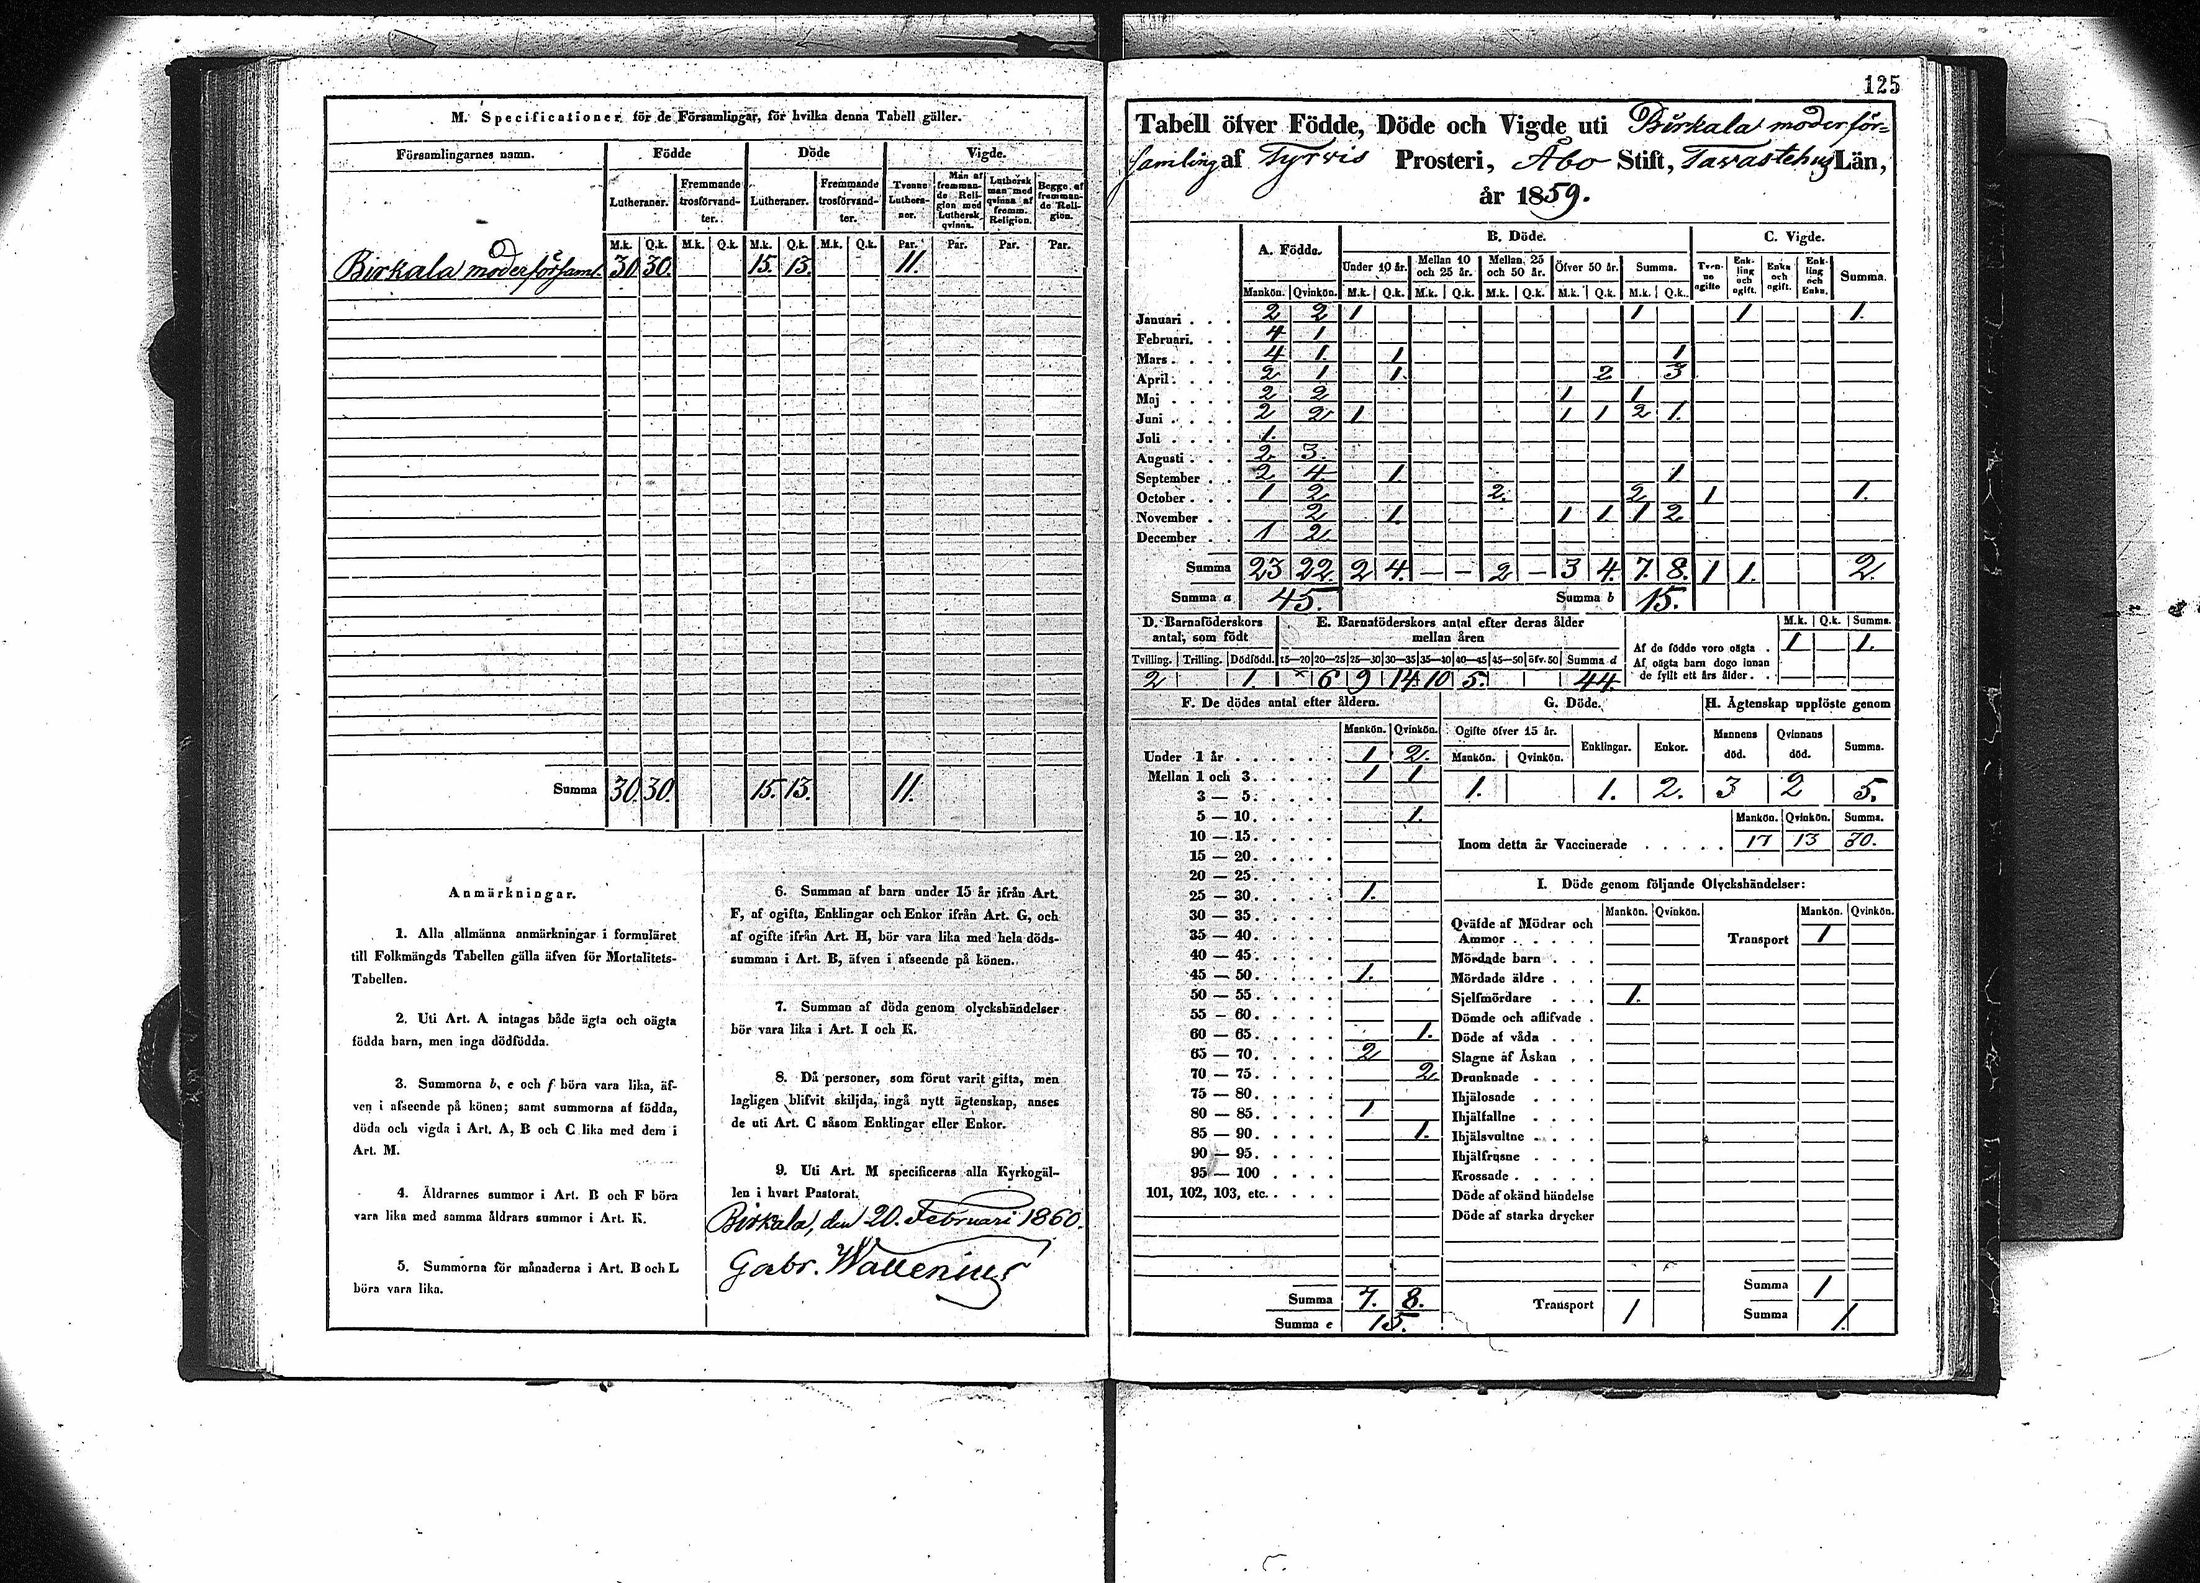 M. Specificationer för de Församlingar, för hvilka denna Tabell gäller.
Församlingarnes namn. Födde Döde Vigde.
Lutheraner. Fremmande trosförvandter. Lutheraner. Fremmande trosförvandter. Tvenne Lutheraner. Man af fremmande Religion med Luthersk qvinna. Luthersk man med qvinna af fremm. Religion. Begge af fremmande Religion.
M.k. Q.k. M.k. Q.k. M.k. Q.k. M.k. Q.k. Par. Par. Par. Par.
Birkala moderförsaml. 30. 30. 15. 13. 11.
Summa 30. 30. 15. 13. 11.
Anmärkningar.
1. Alla allmänna anmärkningar i formuläret
till Folkmängds Tabellen gälla äfven för Mortalitets-
Tabellen.
2. Uti Art. A intagas både ägta och oägta
födda barn, men inga dödfödda.
3. Summorna b, e och f böra vara lika, äf-
ven i afseende på könen; samt summorna af födda,
döda och vigda i Art. A, B och C lika med dem i
Art. M.
4. Åldrarnes summor i Art. B och F böra
vara lika med samma åldrars summor i Art. K.
5. Summorna för månaderna i Art. B och L
böra vara lika.
6. Summan af barn under 15 år ifrån Art.
F, af ogifta, Enklingar och Enkor ifrån Art. G, och
af ogifte ifrån Art. H, bör vara lika med hela döds-
summan i Art. B, äfven i afseende på könen.
7. Summan af döda genom olyckshändelser
bör vara lika i Art. I och K.
8. Då personer, som förut varit gifta, men
lagligen blifvit skiljda, ingå nytt ägtenskap, anses
de uti Art. C såsom Enklingar eller Enkor.
9. Uti Art. M specificeras alla Kyrkogäl-
len i hvart Pastorat.
Birkala, den 20. Februari 1860.
Gabr. Wallenius
125
Tabell öfver Födde, Döde och Vigde uti Birkala moderför-
samling af Tyrvis Prosteri, Åbo Stift, Tavastehus Län,
år 1859.
A. Födde. B. Döde. C. Vigde.
Under 10 år. Mellan 10 och 25 år. Mellan 25 och 50 år. Öfver 50 år. Summa. Tvenne ogifte Enkling och ogift. Enka och ogift. Enkling och Enka. Summa.
Mankön. Qvinkön. M.k. Q.k. M.k. Q.k. M.k. Q.k. M.k. Q.k. M.k. Q.k.
Januari . . . 2 2 1 1 1 1.
Februari. . . 4 1
Mars . . . . 4 1. 1 1
April . . . . 2 1 1. 2 3
Maj . . . . 2 2 1 1
Juni . . . . 2 2 1 1 1 2 1.
Juli . . . . 1.
Augusti . . . 2 3.
September . . 2 4. 1 1
October . . . 1 2 2. 2 1 1.
November . . 2 1. 1 1 1 2
December . . 1 2
Summa 23 22. 2 4. — — 2 — 3 4. 7. 8. 1 1. 2.
Summa a 45. Summa b 15.
D. Barnaföderskors antal, som födt
E. Barnaföderskors antal efter deras ålder mellan åren
Tvilling. Trilling. Dödfödd. 15—20 20—25 25—30 30—35 35—40 40—45 45—50 öfv. 50 Summa d
2 1. 6 9 14 10 5. 44.
M.k. Q.k. Summa.
Af de födde voro oägta . 1 1.
Af oägta barn dogo innan
de fyllt ett års ålder . .
F. De dödes antal efter åldern.
Mankön. Qvinkön.
Under 1 år . . . . . . 1 2.
Mellan 1 och 3 . . . . . 1 1
3 — 5. . . . .
5 — 10. . . . . 1.
10 — 15. . . . .
15 — 20. . . . .
20 — 25. . . . .
25 — 30. . . . . 1.
30 — 35. . . . .
35 — 40. . . . .
40 — 45. . . . .
45 — 50. . . . . 1.
50 — 55. . . . .
55 — 60. . . . .
60 — 65. . . . . 1.
65 — 70. . . . . 2
70 — 75. . . . . 2
75 — 80. . . . .
80 — 85. . . . . 1
85 — 90. . . . . 1.
90 — 95. . . . .
95 — 100 . . . .
101, 102, 103, etc. . . . .
Summa 7. 8.
Summa e 15.
G. Döde.
Ogifte öfver 15 år. Enklingar. Enkor.
Mankön. Qvinkön.
1. 1. 2.
H. Ägtenskap upplöste genom
Mannens död. Qvinnans död. Summa.
3 2 5.
Mankön. Qvinkön. Summa.
Inom detta år Vaccinerade . . . . . 17 13 30.
I. Döde genom följande Olyckshändelser:
Mankön. Qvinkön. Mankön. Qvinkön.
Qväfde af Mödrar och
Ammor . . . . . Transport 1
Mördade barn . . .
Mördade äldre . . .
Sjelfmördare . . . 1.
Dömde och aflifvade .
Döde af våda . . .
Slagne af Åskan . .
Drunknade . . . .
Ihjälosade . . . .
Ihjälfallne . . . .
Ihjälsvultne . . . .
Ihjälfrusne . . . .
Krossade . . . . .
Döde af okänd händelse
Döde af starka drycker
Summa 1
Transport 1 Summa 1.